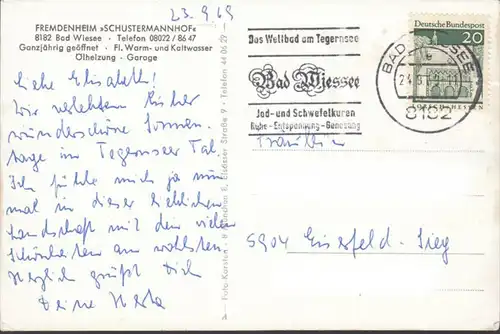 23.9.69
FREMDENHEIM »SCHUSTERMANNHOF«
8182 Bad Wiesee · Telefon 08022 / 86 47
Ganzjährig geöffnet · Fl. Warm- und Kaltwasser
Ölheizung · Garage
Liebe Elisabeth!
Wir verlebten bisher
wunderschöne Sonnen-
tage im Tegernseer Tal.
Ich fühle mich ja nun
mal in dieser lieblichen
Landschaft mit den vielen
Schönheiten am wohlsten.
Herzlich grüßt Dich
Deine Herta
Foto Karsten · München 8, Elsässer Straße 9 · Telefon 44 06 29
Das Weltbad am Tegernsee
Bad Wiessee
Jod- und Schwefelkuren
Ruhe - Entspannung - Genesung
BAD WIESSEE
8182
Deutsche Bundespost
20
LORSCH/HESSEN
Fräulein
5904 Eiserfeld-Sieg